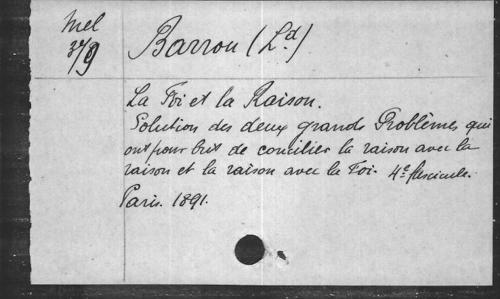 Mel
37/9
Barrou (Ld)
La Foi et la Raison.
Solution des deux grands Problèmes qui
ont pour but de concilier la raison avec la
raison et la raison avec la Foi. 4e fascicule.
Paris. 1891.